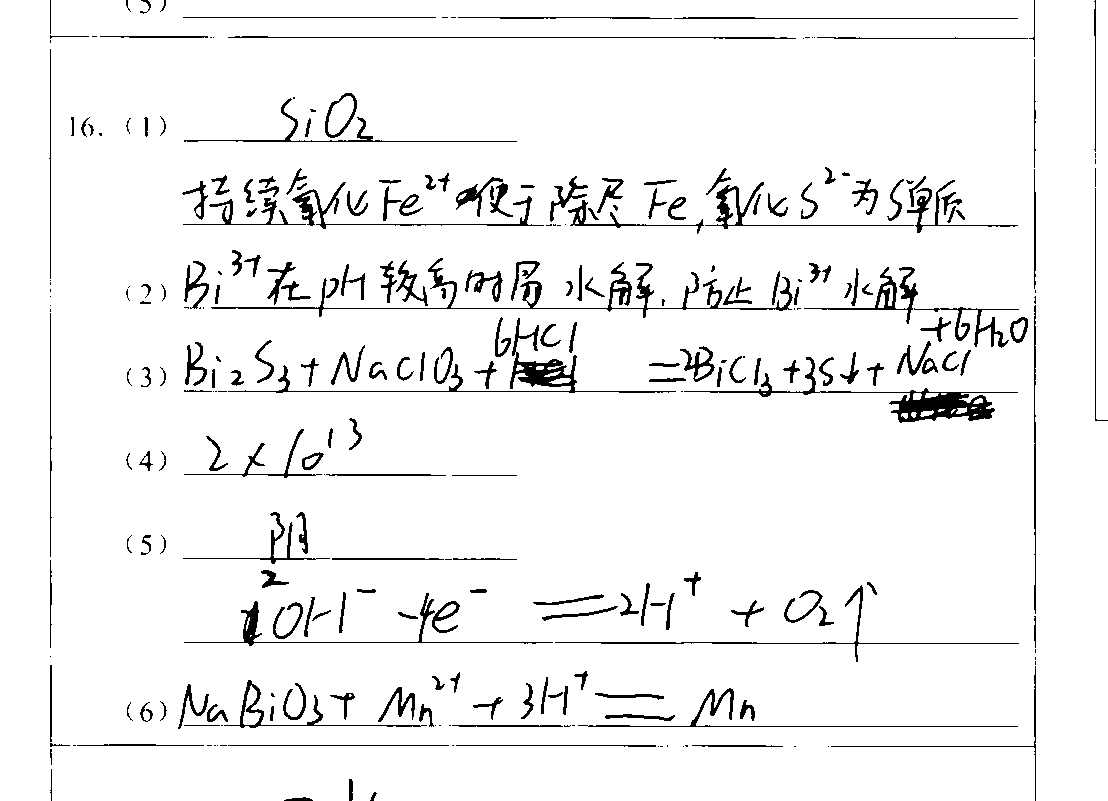 (5)
16. (1) SiO2
持续氧化Fe²⁺便于除尽Fe,氧化S²⁻为S单质
(2) Bi³⁺在pH较高时易水解,防止Bi³⁺水解
(3) Bi2S3+NaClO3+6HCl =2BiCl3+3S↓+NaCl+6H2O
(4) 2×10¹³
(5) 阴
2OH⁻-4e⁻=2H⁺+O2↑
(6) NaBiO3+Mn²⁺+3H⁺=Mn